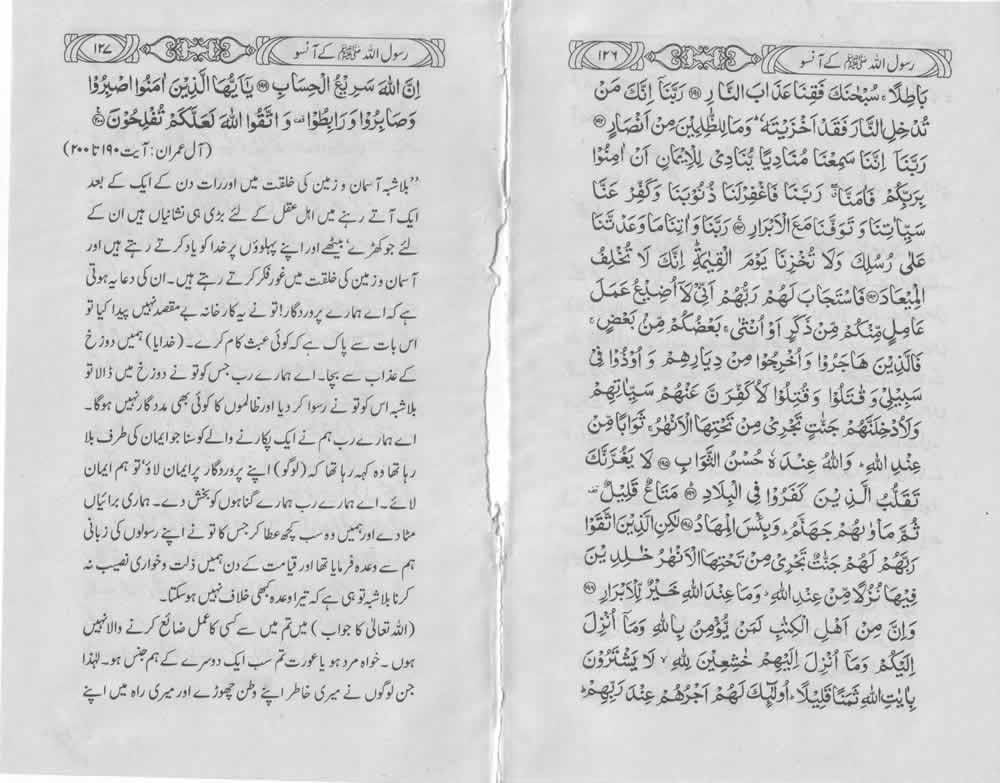 رسول اللہ ﷺ کے آنسو
۱۲۶
بَاطِلًا ۚ سُبْحٰنَكَ فَقِنَا عَذَابَ النَّارِ ﴿۱۹۱﴾ رَبَّنَآ اِنَّكَ مَنْ
تُدْخِلِ النَّارَ فَقَدْ اَخْزَيْتَهٗ ؕ وَمَا لِلظّٰلِمِيْنَ مِنْ اَنْصَارٍ ﴿۱۹۲﴾
رَبَّنَآ اِنَّنَا سَمِعْنَا مُنَادِيًا يُّنَادِيْ لِلْاِيْمَانِ اَنْ اٰمِنُوْا
بِرَبِّكُمْ فَاٰمَنَّا ۖ رَبَّنَا فَاغْفِرْلَنَا ذُنُوْبَنَا وَكَفِّرْ عَنَّا
سَيِّاٰتِنَا وَتَوَفَّنَا مَعَ الْاَبْرَارِ ﴿۱۹۳﴾ رَبَّنَا وَاٰتِنَا مَا وَعَدْتَّنَا
عَلٰى رُسُلِكَ وَلَا تُخْزِنَا يَوْمَ الْقِيٰمَةِ ؕ اِنَّكَ لَا تُخْلِفُ
الْمِيْعَادَ ﴿۱۹۴﴾ فَاسْتَجَابَ لَهُمْ رَبُّهُمْ اَنِّيْ لَآ اُضِيْعُ عَمَلَ
عَامِلٍ مِّنْكُمْ مِّنْ ذَكَرٍ اَوْ اُنْثٰى ۚ بَعْضُكُمْ مِّنْ بَعْضٍ ۚ
فَالَّذِيْنَ هَاجَرُوْا وَاُخْرِجُوْا مِنْ دِيَارِهِمْ وَ اُوْذُوْا فِيْ
سَبِيْلِيْ وَقٰتَلُوْا وَ قُتِلُوْا لَاُكَفِّرَنَّ عَنْهُمْ سَيِّاٰتِهِمْ
وَلَاُدْخِلَنَّهُمْ جَنّٰتٍ تَجْرِيْ مِنْ تَحْتِهَا الْاَنْهٰرُ ۚ ثَوَابًا مِّنْ
عِنْدِ اللّٰهِ ؕ وَاللّٰهُ عِنْدَهٗ حُسْنُ الثَّوَابِ ﴿۱۹۵﴾ لَا يَغُرَّنَّكَ
تَقَلُّبُ الَّذِيْنَ كَفَرُوْا فِي الْبِلَادِ ﴿۱۹۶﴾ مَتَاعٌ قَلِيْلٌ ۟
ثُمَّ مَاْوٰىهُمْ جَهَنَّمُ ؕ وَبِئْسَ الْمِهَادُ ﴿۱۹۷﴾ لٰكِنِ الَّذِيْنَ اتَّقَوْا
رَبَّهُمْ لَهُمْ جَنّٰتٌ تَجْرِيْ مِنْ تَحْتِهَا الْاَنْهٰرُ خٰلِدِيْنَ
فِيْهَا نُزُلًا مِّنْ عِنْدِ اللّٰهِ ؕ وَمَا عِنْدَ اللّٰهِ خَيْرٌ لِّلْاَبْرَارِ ﴿۱۹۸﴾
وَاِنَّ مِنْ اَهْلِ الْكِتٰبِ لَمَنْ يُّؤْمِنُ بِاللّٰهِ وَمَآ اُنْزِلَ
اِلَيْكُمْ وَمَآ اُنْزِلَ اِلَيْهِمْ خٰشِعِيْنَ لِلّٰهِ ۙ لَا يَشْتَرُوْنَ
بِاٰيٰتِ اللّٰهِ ثَمَنًا قَلِيْلًا ؕ اُولٰٓئِكَ لَهُمْ اَجْرُهُمْ عِنْدَ رَبِّهِمْ ؕ
رسول اللہ ﷺ کے آنسو
۱۲۷
اِنَّ اللّٰهَ سَرِيْعُ الْحِسَابِ ﴿۱۹۹﴾ يٰٓاَيُّهَا الَّذِيْنَ اٰمَنُوا اصْبِرُوْا
وَصَابِرُوْا وَرَابِطُوْا ۟ وَاتَّقُوا اللّٰهَ لَعَلَّكُمْ تُفْلِحُوْنَ ﴿۲۰۰﴾
(آل عمران: آیت ۱۹۰ تا ۲۰۰)
”بلاشبہ آسمان و زمین کی خلقت میں اور رات دن کے ایک کے بعد
ایک آتے رہنے میں اہل عقل کے لئے بڑی ہی نشانیاں ہیں ان کے
لئے جو کھڑے، بیٹھے اور اپنے پہلوؤں پر خدا کو یاد کرتے رہتے ہیں اور
آسمان و زمین کی خلقت میں غور فکر کرتے رہتے ہیں۔ ان کی دعا یہ ہوتی
ہے کہ اے ہمارے پروردگار! تو نے یہ کارخانہ بے مقصد نہیں پیدا کیا تو
اس بات سے پاک ہے کہ کوئی عبث کام کرے۔ (خدایا) ہمیں دوزخ
کے عذاب سے بچا۔ اے ہمارے رب جس کو تو نے دوزخ میں ڈالا تو
بلاشبہ اس کو تو نے رسوا کر دیا اور ظالموں کا کوئی بھی مددگار نہیں ہوگا۔
اے ہمارے رب ہم نے ایک پکارنے والے کو سنا جو ایمان کی طرف بلا
رہا تھا وہ کہہ رہا تھا کہ (لوگو) اپنے پروردگار پر ایمان لاؤ، تو ہم ایمان
لائے۔ اے ہمارے رب ہمارے گناہوں کو بخش دے۔ ہماری برائیاں
مٹا دے اور ہمیں وہ سب کچھ عطا کر جس کا تو نے اپنے رسولوں کی زبانی
ہم سے وعدہ فرمایا تھا اور قیامت کے دن ہمیں ذلت و خواری نصیب نہ
کرنا بلاشبہ تو ہی ہے کہ تیرا وعدہ کبھی خلاف نہیں ہوسکتا۔
(اللہ تعالیٰ کا جواب) میں تم میں سے کسی کا عمل ضائع کرنے والا نہیں
ہوں۔ خواہ مرد ہو یا عورت تم سب ایک دوسرے کے ہم جنس ہو۔ لہٰذا
جن لوگوں نے میری خاطر اپنے وطن چھوڑے اور میری راہ میں اپنے